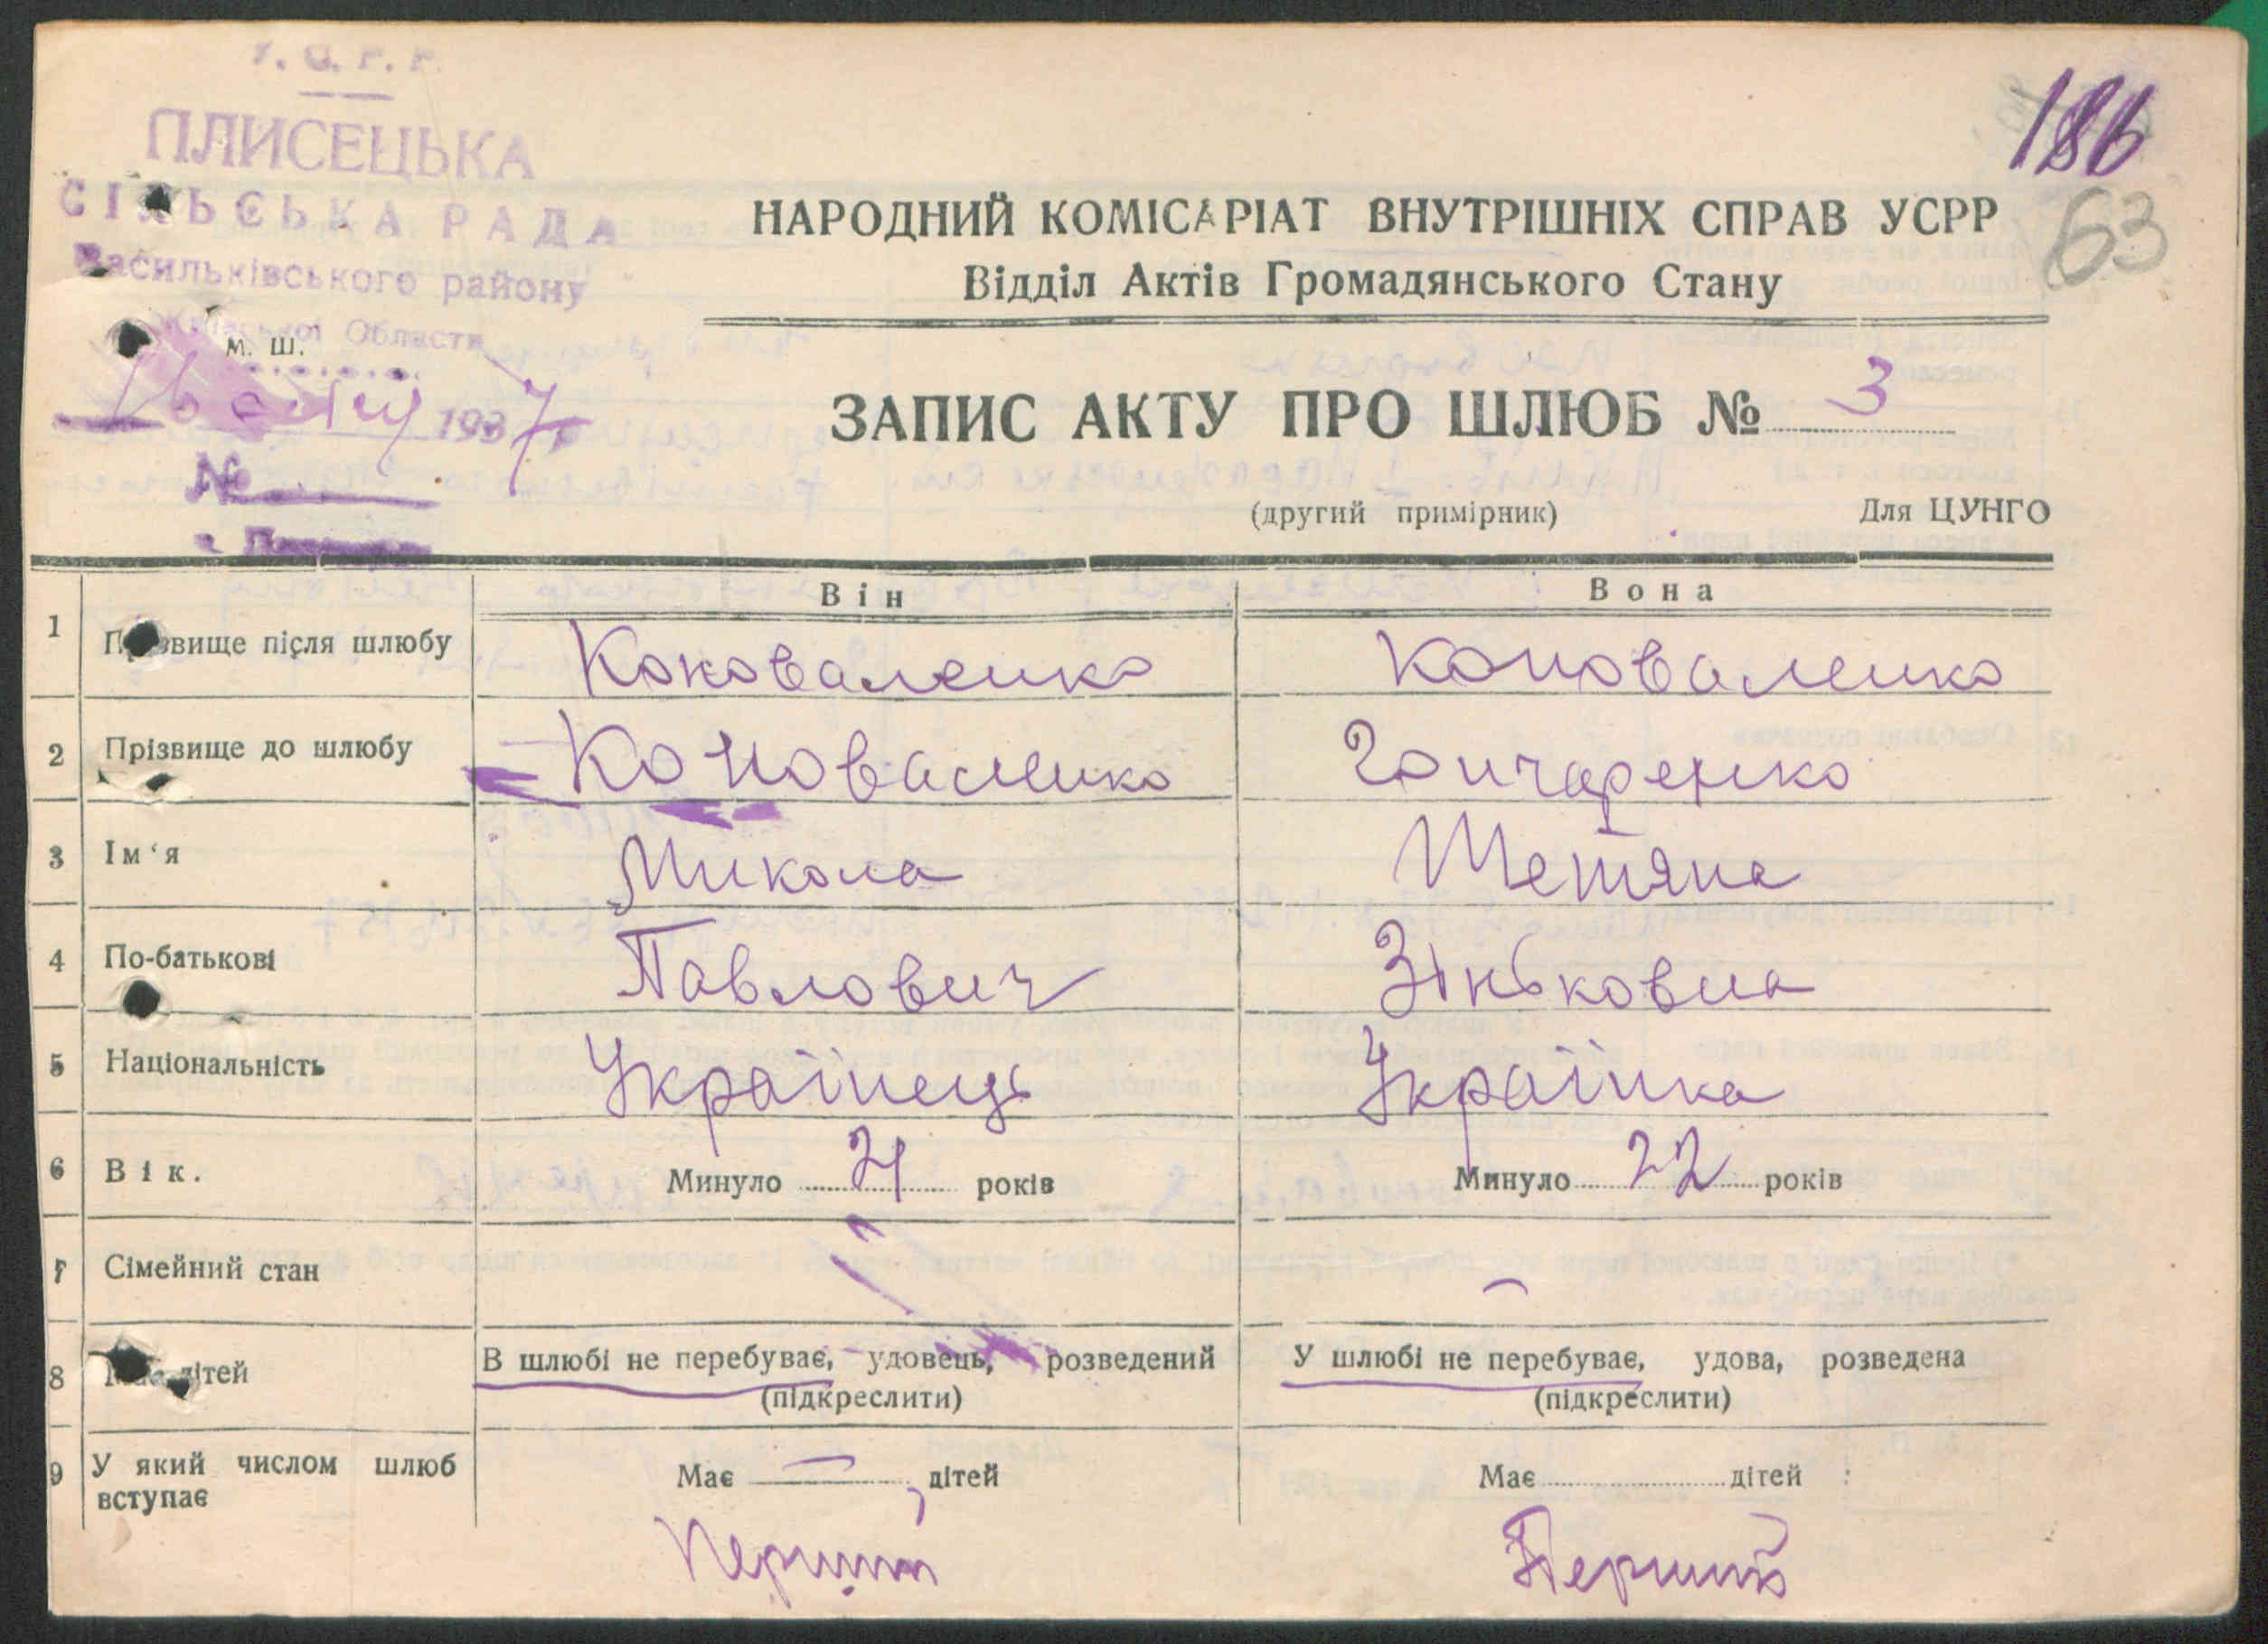 У. С. Р. Р.
ПЛИСЕЦЬКА
СІЛЬСЬКА РАДА
Васильківського району
Київської Области
м. ш.
1937
№
186
63
НАРОДНИЙ КОМІСАРІАТ ВНУТРІШНІХ СПРАВ УСРР
Відділ Актів Громадянського Стану
ЗАПИС АКТУ ПРО ШЛЮБ № 3
(другий примірник) Для ЦУНГО
Він Вона
1 Прізвище після шлюбу Коноваленко Коноваленко
2 Прізвище до шлюбу Коноваленко Гончаренко
3 Ім‘я Микола Тетяна
4 По-батькові Павлович Зіньковна
5 Національність Українець Українка
6 Вік. Минуло 21 років Минуло 22 років
7 Сімейний стан
8 Має дітей В шлюбі не перебуває, удовець, розведений У шлюбі не перебуває, удова, розведена
(підкреслити) (підкреслити)
9 У який числом шлюб вступає Має — дітей Має дітей
Перший Перший